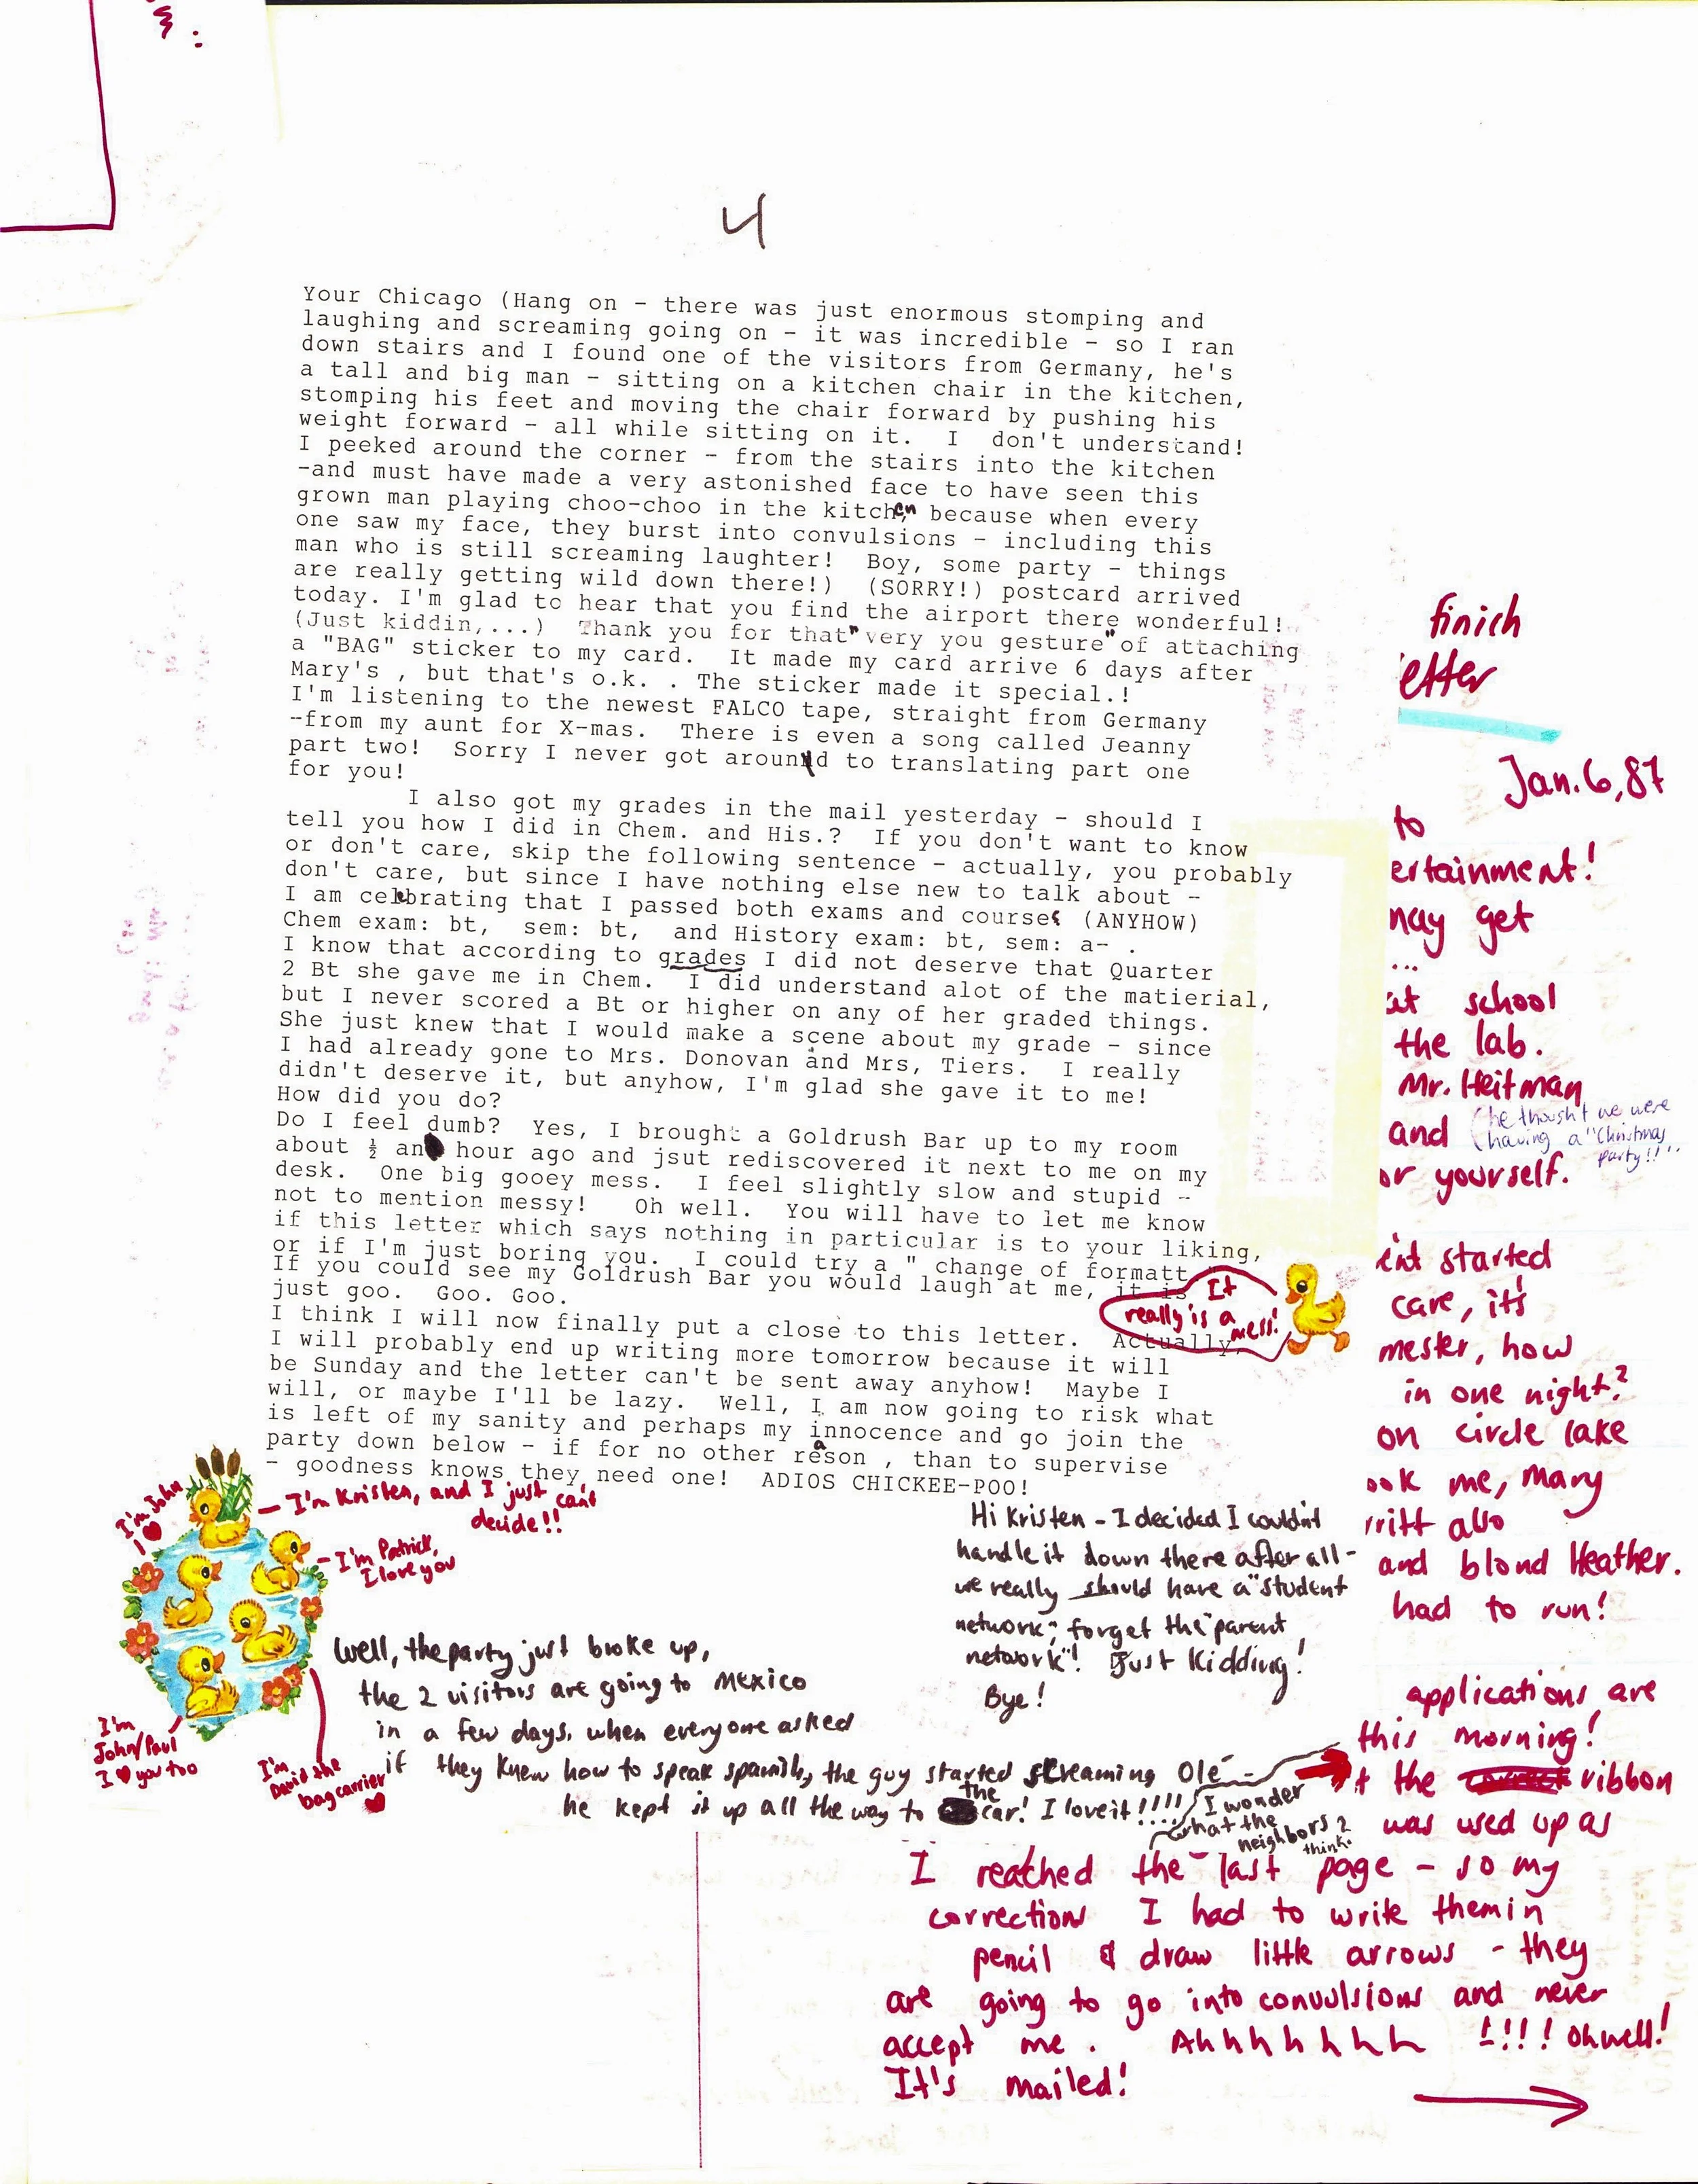 4
Your Chicago (Hang on - there was just enormous stomping and
laughing and screaming going on - it was incredible - so I ran
down stairs and I found one of the visitors from Germany, he's
a tall and big man - sitting on a kitchen chair in the kitchen,
stomping his feet and moving the chair forward by pushing his
weight forward - all while sitting on it. I don't understand!
I peeked around the corner - from the stairs into the kitchen
-and must have made a very astonished face to have seen this
grown man playing choo-choo in the kitchen because when every
one saw my face, they burst into convulsions - including this
man who is still screaming laughter! Boy, some party - things
are really getting wild down there!) (SORRY!) postcard arrived
today. I'm glad to hear that you find the airport there wonderful!
(Just kiddin,...) Thank you for that "very you gesture" of attaching
a "BAG" sticker to my card. It made my card arrive 6 days after
Mary's , but that's o.k. . The sticker made it special.!
I'm listening to the newest FALCO tape, straight from Germany
-from my aunt for X-mas. There is even a song called Jeanny
part two! Sorry I never got around to translating part one
for you!
I also got my grades in the mail yesterday - should I
tell you how I did in Chem. and His.? If you don't want to know
or don't care, skip the following sentence - actually, you probably
don't care, but since I have nothing else new to talk about -
I am celebrating that I passed both exams and courses (ANYHOW)
Chem exam: bt, sem: bt, and History exam: bt, sem: a- .
I know that according to grades I did not deserve that Quarter
2 Bt she gave me in Chem. I did understand alot of the matierial,
but I never scored a Bt or higher on any of her graded things.
She just knew that I would make a scene about my grade - since
I had already gone to Mrs. Donovan and Mrs, Tiers. I really
didn't deserve it, but anyhow, I'm glad she gave it to me!
How did you do?
Do I feel dumb? Yes, I brought a Goldrush Bar up to my room
about ½ an hour ago and jsut rediscovered it next to me on my
desk. One big gooey mess. I feel slightly slow and stupid -
not to mention messy! Oh well. You will have to let me know
if this letter which says nothing in particular is to your liking,
or if I'm just boring you. I could try a " change of formatt
If you could see my Goldrush Bar you would laugh at me, it is
just goo. Goo. Goo.
It
really is a
mess!
I think I will now finally put a close to this letter. Actually,
I will probably end up writing more tomorrow because it will
be Sunday and the letter can't be sent away anyhow! Maybe I
will, or maybe I'll be lazy. Well, I am now going to risk what
is left of my sanity and perhaps my innocence and go join the
party down below - if for no other reason , than to supervise
- goodness knows they need one! ADIOS CHICKEE-POO!
I'm John
- I'm Kristen, and I just can't
decide!!
- I'm Patrick,
I love you
I'm
John/Paul
I ♥ you too
I'm
David the
bag carrier
♥
Hi Kristen - I decided I couldn't
handle it down there after all -
we really should have a "student
network", forget the "parent
network"! Just kidding!
Bye!
Well, the party just broke up,
the 2 visitors are going to Mexico
in a few days. when everyone asked
if they knew how to speak spanish, the guy started screaming Olé -
he kept it up all the way to the car! I love it!!!!
I wonder
what the
neighbors
think?
finich
etter
Jan. 6, 87
to
ertainment!
may get
...
at school
the lab.
Mr. Heitman
and (he thought we were
having a "Christmas
party!!"
or yourself.
ent started
care, it's
mester, how
in one night?
on circle lake
ook me, Mary
rritt also
and blond Heather.
had to run!
applications are
this morning!
t the ribbon
was used up as
I reached the last page - so my
corrections I had to write them in
pencil & draw little arrows - they
are going to go into convulsions and never
accept me . Ahhhhhhh !!!! oh well!
It's mailed!